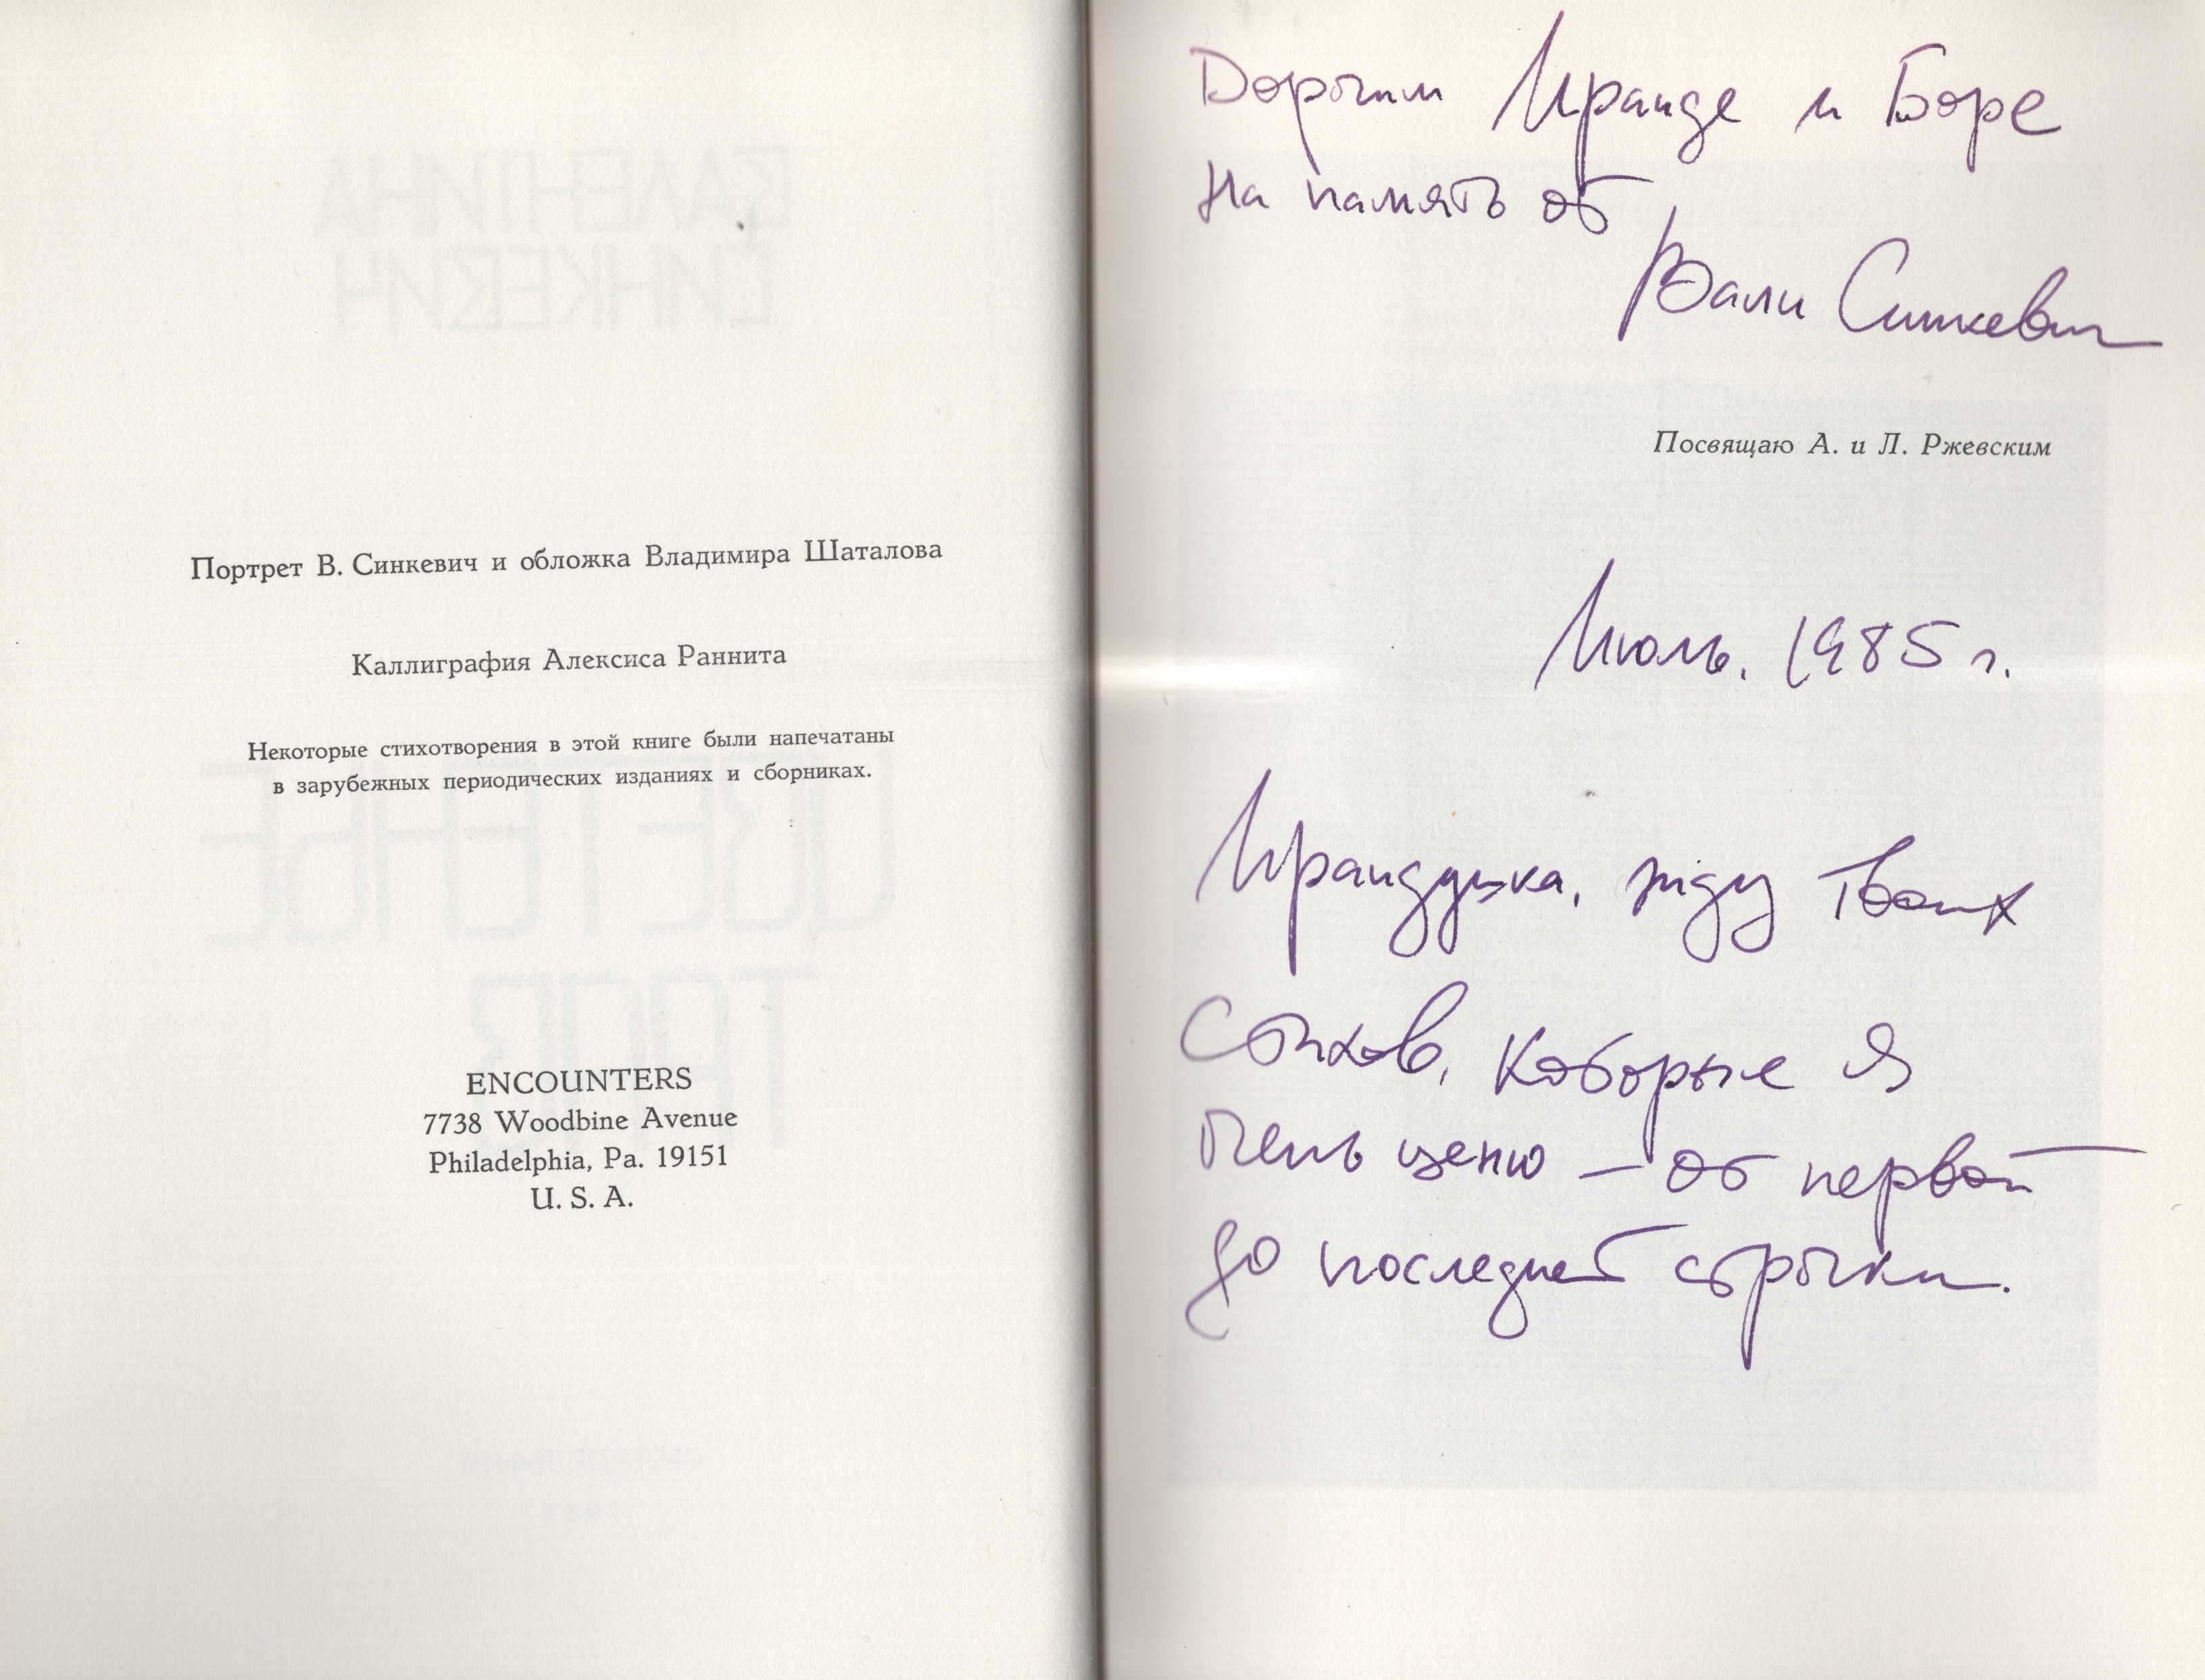 Портрет В. Синкевич и обложка Владимира Шаталова
Каллиграфия Алексиса Раннита
Некоторые стихотворения в этой книге были напечатаны
в зарубежных периодических изданиях и сборниках.
ENCOUNTERS
7738 Woodbine Avenue
Philadelphia, Pa. 19151
U. S. A.
Дорогим Ираиде и Боре
На память от
Вали Синкевич
Посвящаю А. и Л. Ржевским
Июль. 1985 г.
Ираидушка, жду Твоих
Стихов, которые я
очень ценю – от первой
до последней строчки.